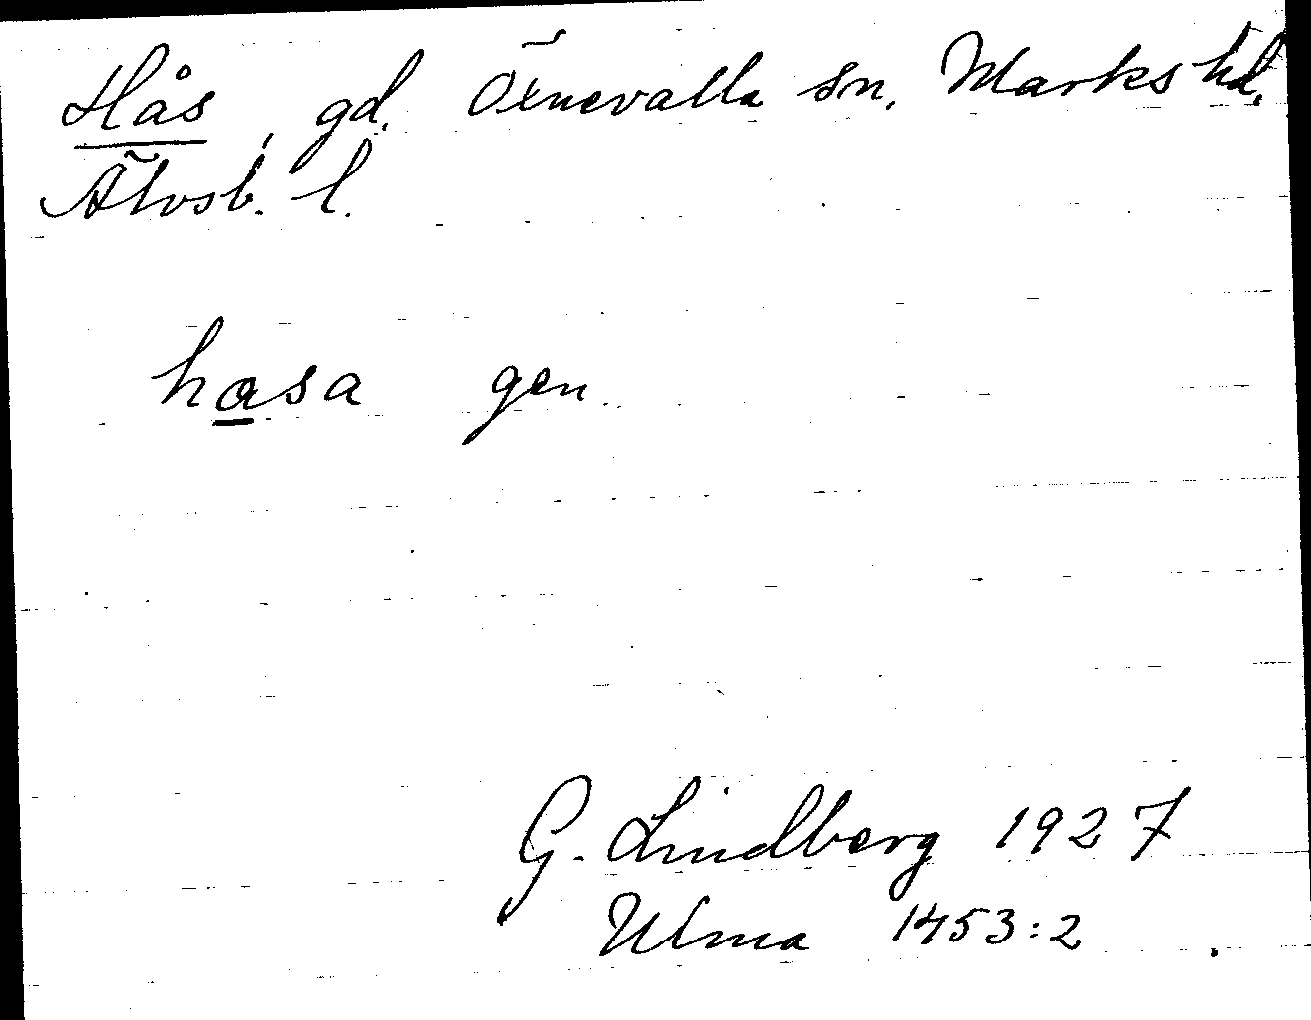 Hås, gd. Öxnevalla sn, Marks hd.
Älvsb. l.
hasa gen.
G. Lindberg 1927
Ulma 1453:2